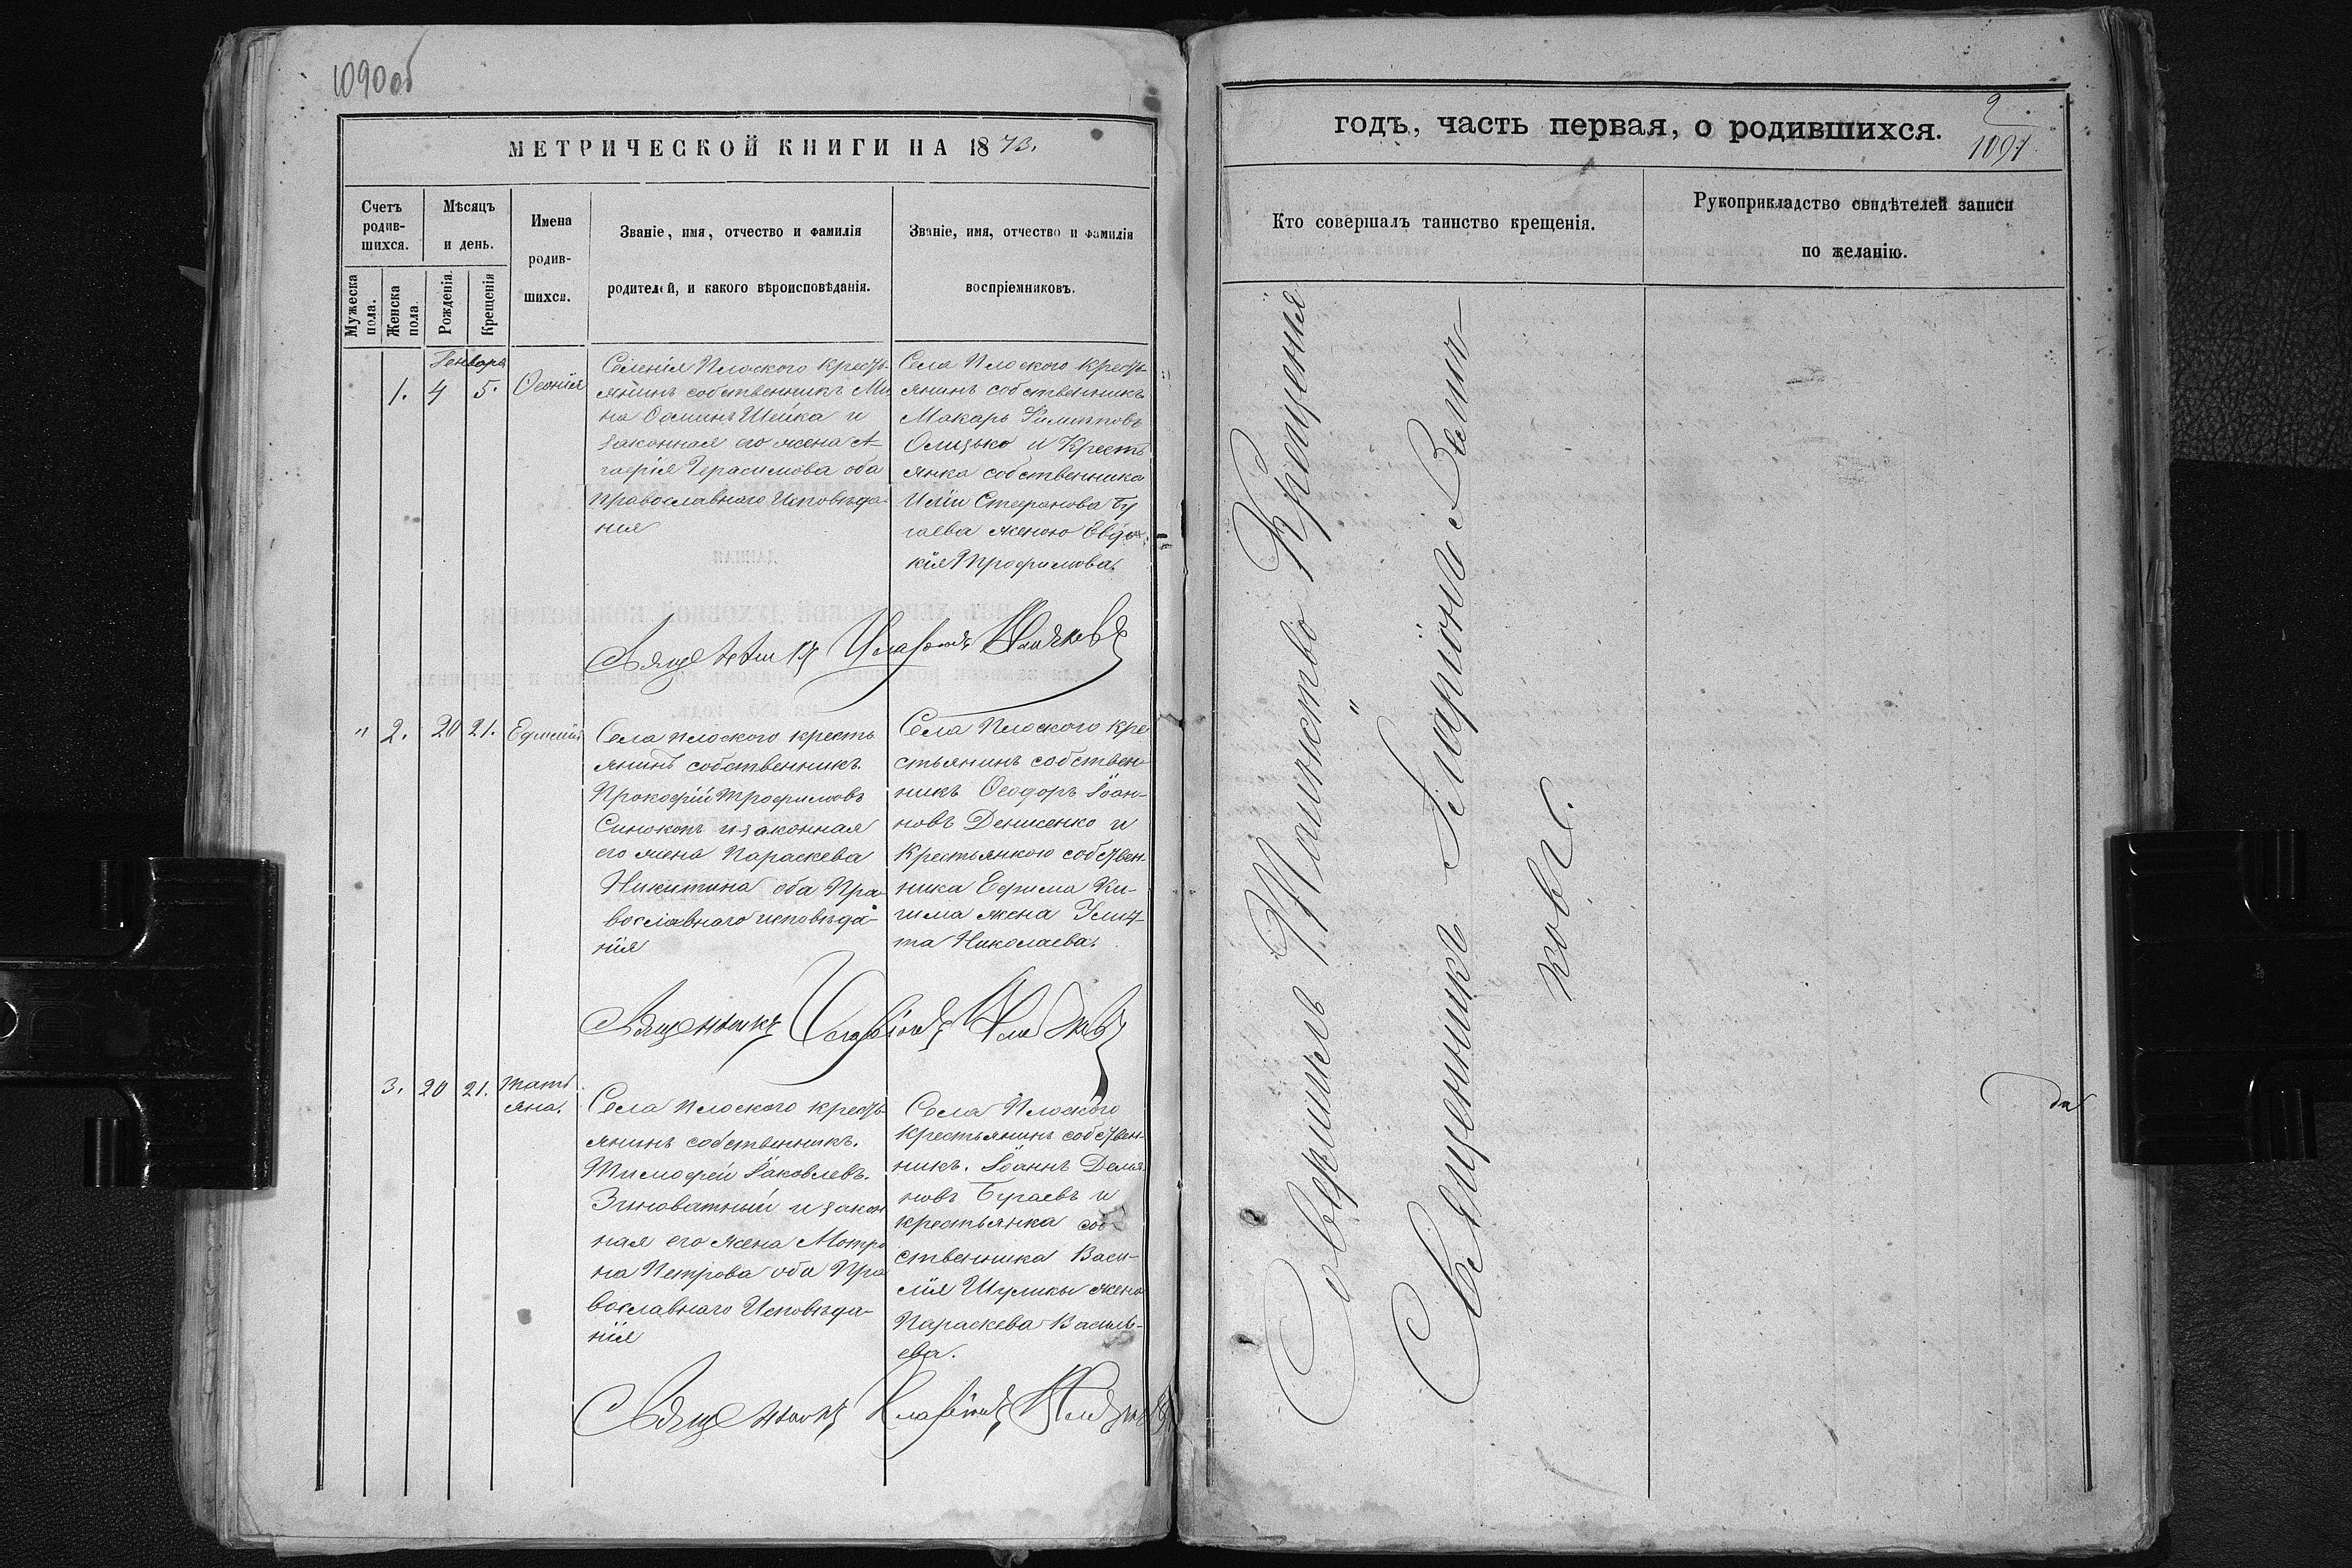 1090 об
МЕТРИЧЕСКОЙ КНИГИ НА 1873.
Счетъ родив-шихся.
Мѣсяцъ и день.
Имена родив-шихся.
Званіе, имя, отчество и фамилія
родителей, и какого вѣроисповѣданія.
Званіе, имя, отчество и фамилія
воспріемниковъ.
Мужеска пола.
Женска пола.
Рожденія.
Крещенія
Генваря
1. 4 5. Ѳеонія
Селенія Плоского кресть-
янинъ собственникъ Ми
на Ѳоминъ Шейка и
законная его жена А-
гафія Герасимова оба
Православнаго Исповѣда-
нія
Села Плоского кресть
янинъ собственникъ
Макаръ Филипповъ
и Кресть
янка собственника
Иліи Стефанова Бу
гаева женою Евдо
кія Трофимова.
Священникъ
" 2. 20 21. Ефимія
Села Плоского кресть
янинъ собственникъ.
Прокофій Трофимовъ
Синокопъ и законная
его жена Параскева
Никитина оба Пра-
вославнаго исповѣда-
нія
Села Плоского кре
стьянинъ собствен-
никъ Ѳеодоръ Іоан-
новъ Денисенко и
Крестьянкою собствен-
ника Ефима Ки-
жена
та Николаева.
Священникъ
3. 20 21. Тать
яна.
Села Плоского кресть
янинъ собственникъ.
Тимофей Іаковлевъ.
Зиноватный и закон
ная его жена Мотро
на Петрова оба Пра
вославнаго Исповѣда-
нія
Села Плоского
Крестьянинъ собствен-
никъ. Іоаннъ Демья
новъ Бугаевъ и
крестьянка соб
ственника Васи-
лія Шулики жена
Параскева Василь-
ева.
Священникъ
годъ, часть первая, о родившихся.
2
1091
Кто совершалъ таинство крещенія.
Рукоприкладство свидѣтелей записи
по желанію.
Совершилъ Таинство Крещенія
Священникъ Иларіонъ
ковъ.